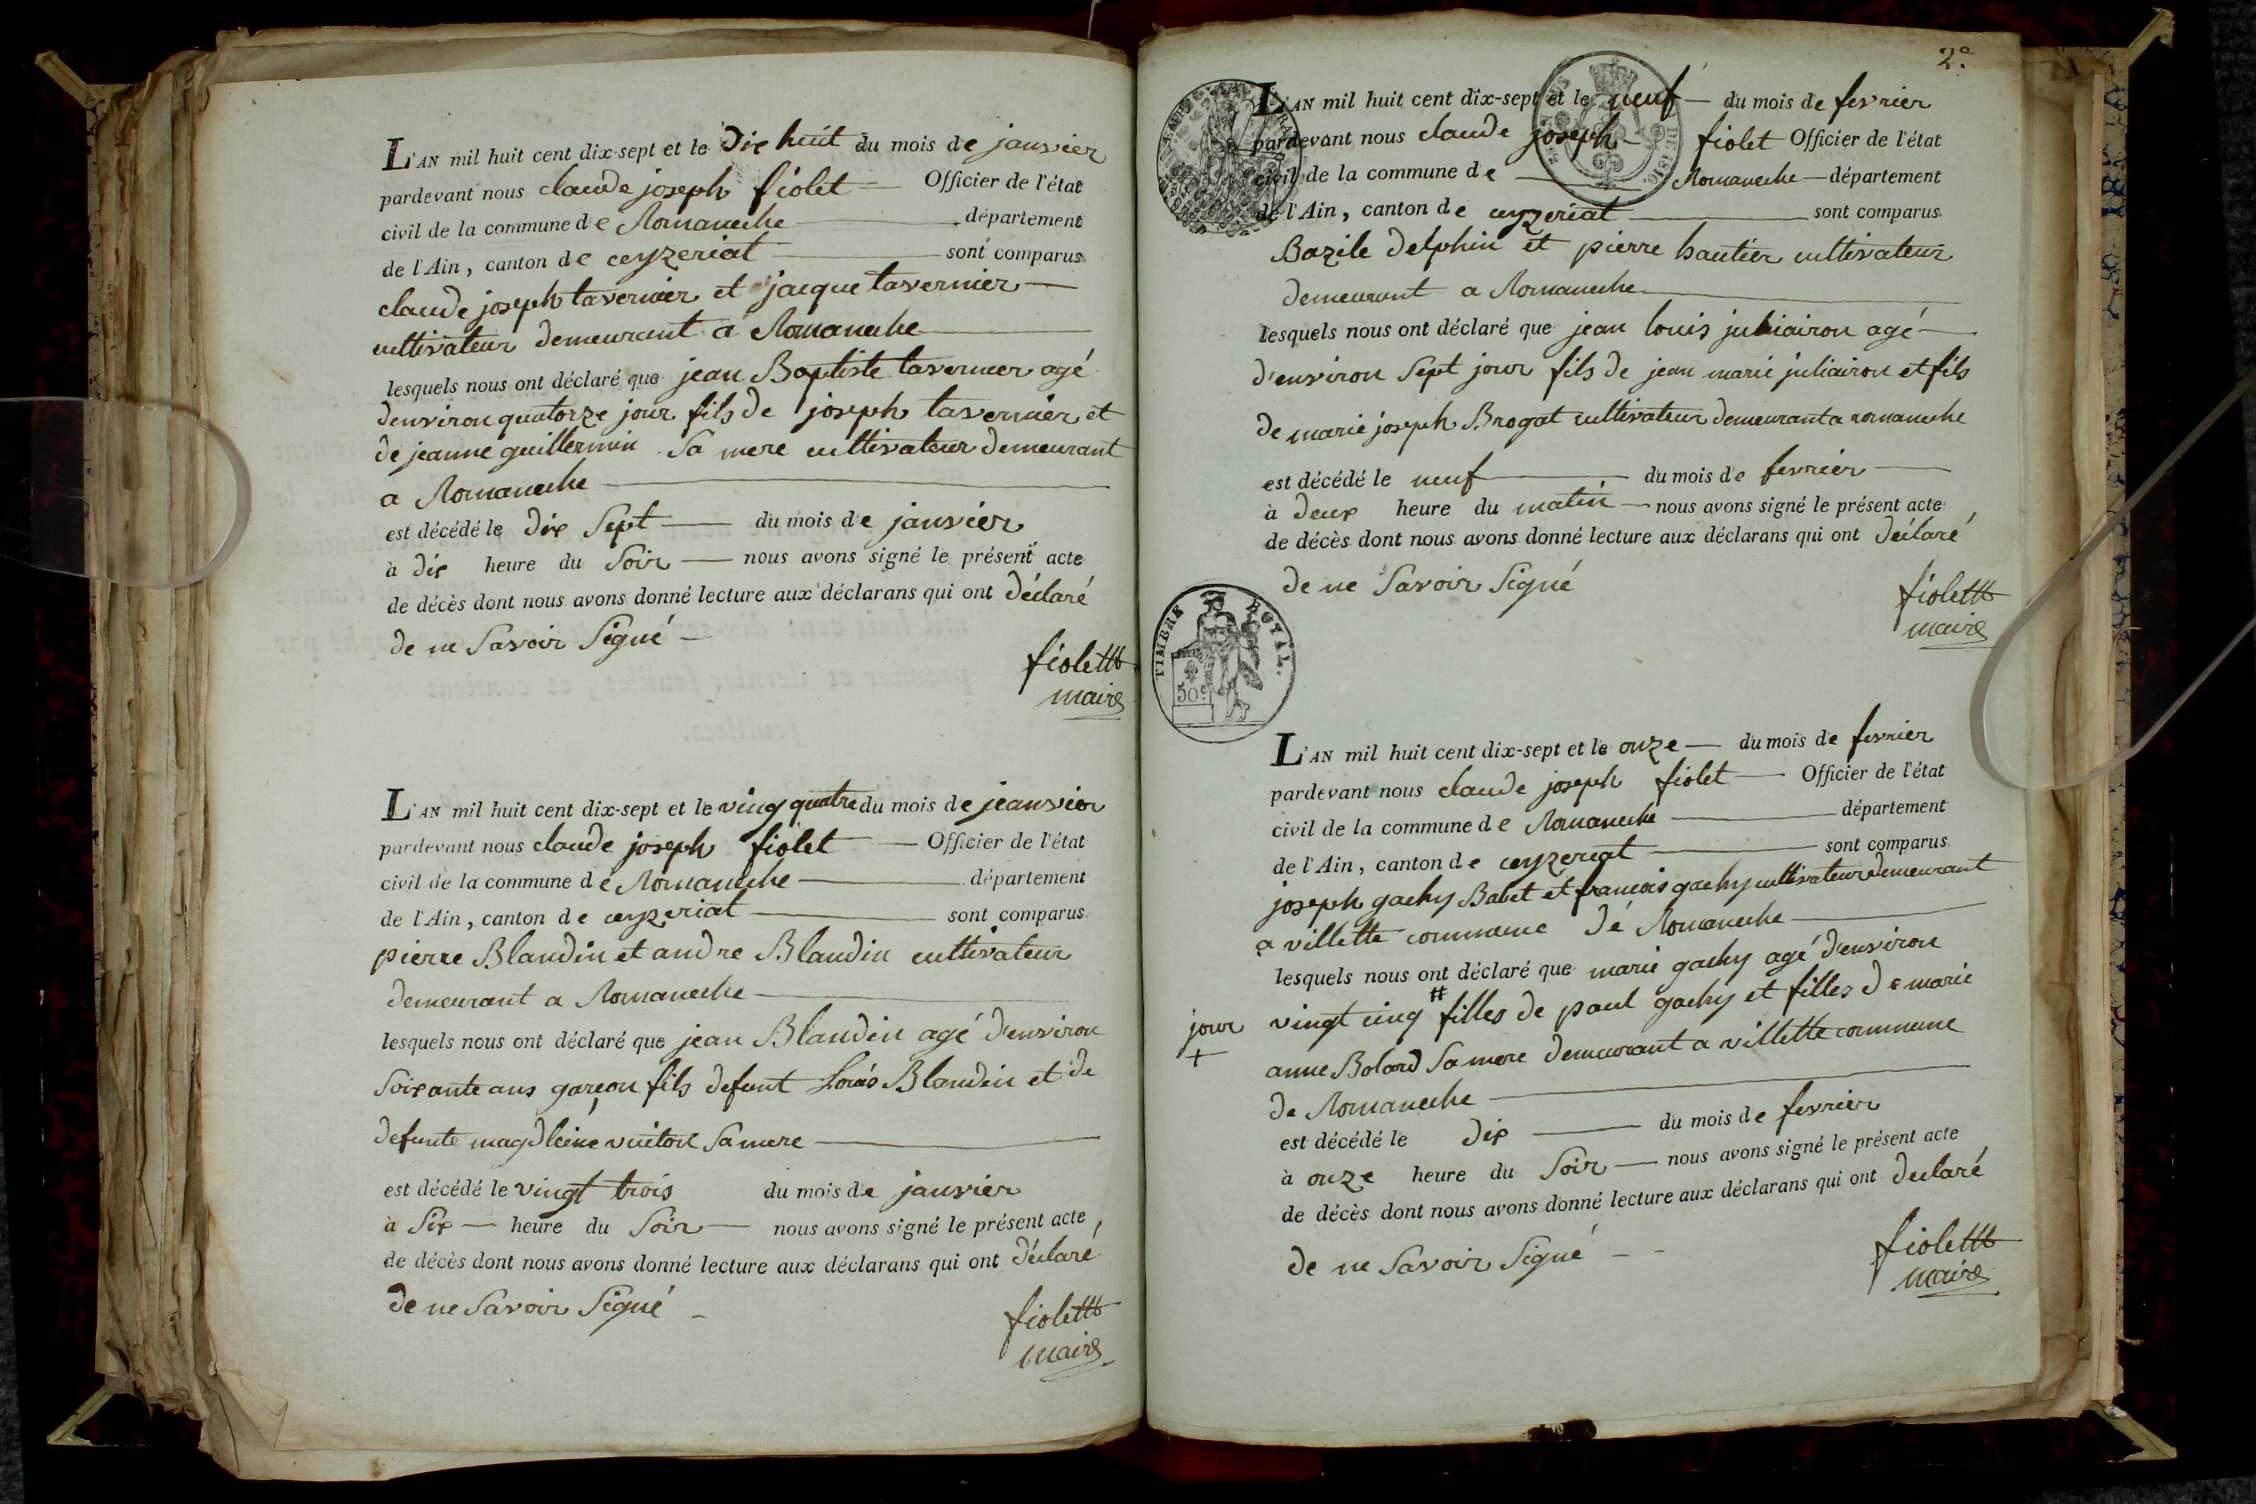 L'AN mil huit cent dix-sept et le dix huit du mois de janvier
pardevant nous claude joseph fiolet — Officier de l'état
civil de la commune de Romaneche — département
de l'Ain, canton de ceyzeriat — sont comparus
claude joseph tavernier et jacque tavernier —
cultivateur demeurant a Romaneche —
lesquels nous ont déclaré que jean Baptiste tavernier agé
d'environ quatorze jour fils de joseph tavernier et
de jeanne guillermin sa mere cultivateur demeurant
a Romaneche —
est décédé le dix sept — du mois de janvier
à dix heure du soir — nous avons signé le présent acte
de décès dont nous avons donné lecture aux déclarans qui ont déclaré
de ne savoir signé —
fiolet
maire
L'AN mil huit cent dix-sept et le vingt quatre du mois de jeanvier
pardevant nous claude joseph fiolet — Officier de l'état
civil de la commune de Romaneche — département
de l'Ain, canton de ceyzeriat — sont comparus
pierre Blandin et andre Blandin cultivateur
demeurant a Romaneche —
lesquels nous ont déclaré que jean Blandin agé d'environ
soixante ans garçon fils defunt Louis Blandin et de
defunte magdleine vuiton sa mere —
est décédé le vingt trois du mois de janvier
à six — heure du soir — nous avons signé le présent acte
de décès dont nous avons donné lecture aux déclarans qui ont déclaré
de ne savoir signé —
fiolet
maire
2e
L'AN mil huit cent dix-sept et le neuf — du mois de fevrier
pardevant nous claude joseph — fiolet Officier de l'état
civil de la commune de — Romaneche — département
de l'Ain, canton de ceyzeriat — sont comparus
Bazile delphin et pierre hautier cultivateur
demeurant a Romaneche —
lesquels nous ont déclaré que jean louis juliairon agé —
d'environ sept jour fils de jean marie juliairon et fils
de marie joseph Brogat cultivateur demeurant a romaneche
est décédé le neuf — du mois de fevrier —
à deux heure du matin — nous avons signé le présent acte
de décès dont nous avons donné lecture aux déclarans qui ont déclaré
de ne savoir signé
fiolet
maire
TIMBRE ROYAL.
50c
L'AN mil huit cent dix-sept et le onze — du mois de fevrier
pardevant nous claude joseph fiolet — Officier de l'état
civil de la commune de Romaneche — département
de l'Ain, canton de ceyzeriat — sont comparus
joseph gachy Babet et francois gachy cultivateur demeurant
a villette commune de Romaneche —
lesquels nous ont déclaré que marie gachy agé d'environ
vingt cinq # filles de paul gachy et filles de marie
jour
+
anne Bolard sa mere demeurant a villette commune
de Romaneche —
est décédé le dix — du mois de fevrier
à onze heure du soir — nous avons signé le présent acte
de décès dont nous avons donné lecture aux déclarans qui ont declaré
de ne savoir signé — —
fiolet
maire